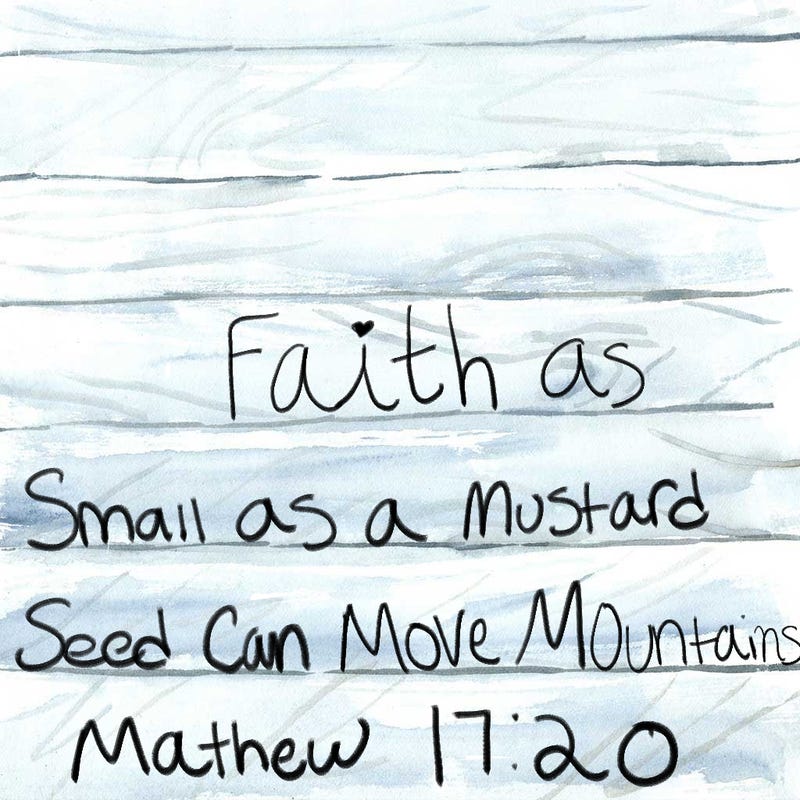 Faith as
Small as a Mustard
Seed Can Move Mountains
Mathew 17:20